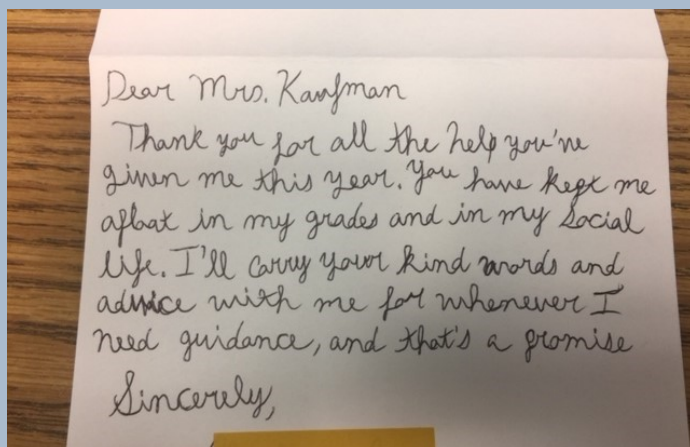 Dear Mrs. Kaufman
Thank you for all the help you've
given me this year. You have kept me
afloat in my grades and in my social
life. I'll carry your kind words and
advice with me for whenever I
need guidance, and that's a promise
Sincerely,